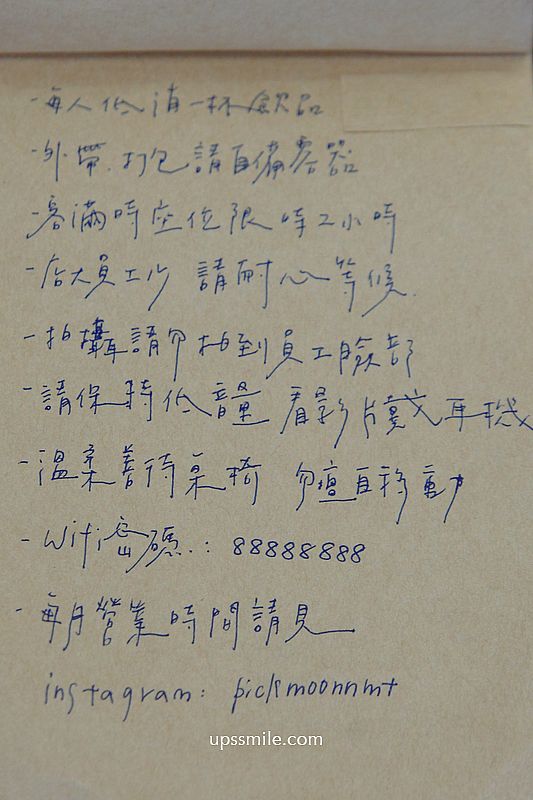 -每人低消一杯飲品
-外帶.打包請自備容器
-客滿時座位限時2小時
-店大員工少 請耐心等候.
-拍攝請勿拍到員工臉部
-請保持低音量 看影片戴耳機
-溫柔善待桌椅 勿擅自移動
-wifi密碼.: 88888888
-每月營業時間請見
instagram: pickmoonnmt
upssmile.com